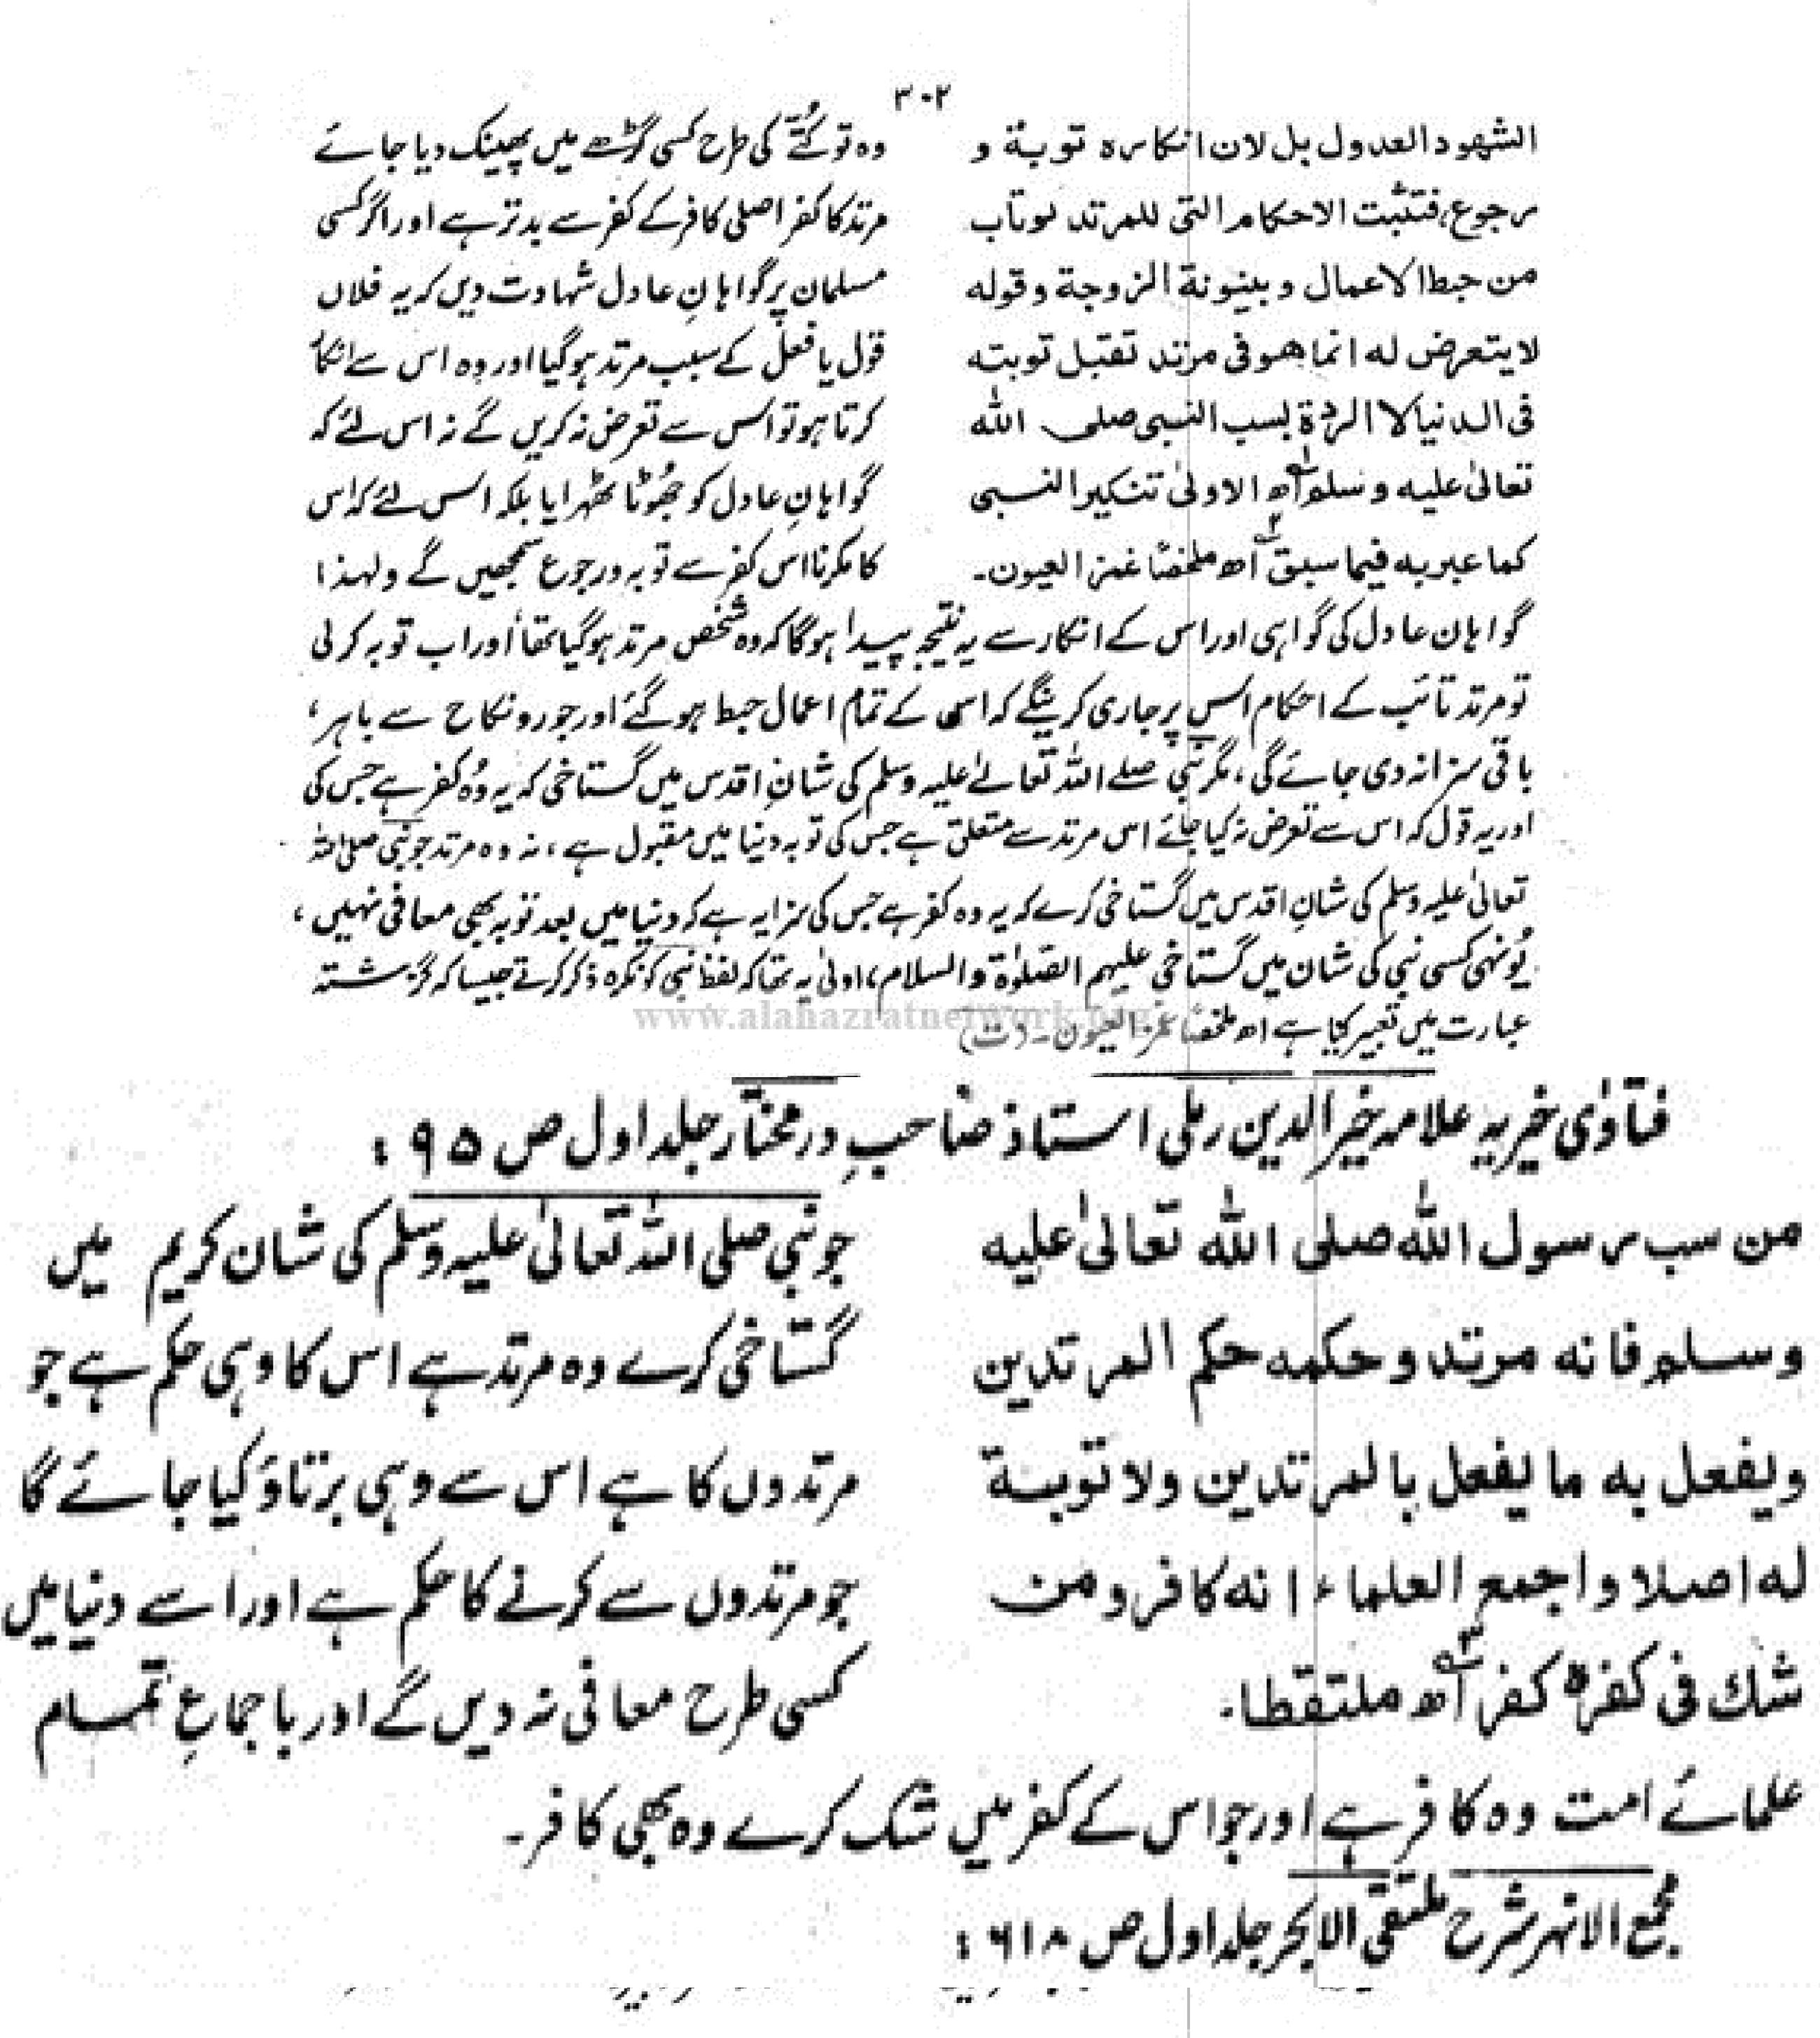 ٣٠٢
الشهود العدول بل لان انكاره توبة و
رجوع، فتثبت الاحكام التى للمرتد لوتاب
من حبط الاعمال و بينونة الزوجة وقوله
لا يتعرض له انما هو فى مرتد تقبل توبته
فى الدنيا لا الردة بسب النبى صلى الله
تعالىٰ عليه وسلم اھ الاولىٰ تنكير النبى
كما عبر به فيما سبق اھ ملخصًا غمز العيون۔
وہ تو کُتّے کی طرح کسی گڑھے میں پھینک دیا جائے
مرتد کا کفر اصلی کافر کے کفر سے بدتر ہے اور اگر کسی
مسلمان پر گواہانِ عادل شہادت دیں کہ یہ فلاں
قول یا فعل کے سبب مرتد ہوگیا اور وہ اس سے انکار
کرتا ہو تو اس سے تعرض نہ کریں گے نہ اس لئے کہ
گواہانِ عادل کو جُھوٹا ٹھہرایا بلکہ اس لئے کہ اس
کا مکرنا اس کفر سے توبہ و رجوع سمجھیں گے ولہذا
گواہان عادل کی گواہی اور اس کے انکار سے یہ نتیجہ پیدا ہوگا کہ وہ شخص مرتد ہوگیا تھا اور اب توبہ کرلی
تو مرتد تائب کے احکام اس پر جاری کرینگے کہ اس کے تمام اعمال حبط ہوگئے اور جورو نکاح سے باہر،
باقی سزا نہ دی جائے گی، مگر نبی صلے اللہ تعالےٰ علیہ وسلم کی شانِ اقدس میں گستاخی کہ یہ وُہ کفر ہے جس کی
اور یہ قول کہ اس سے تعرض نہ کیا جائے اس مرتد سے متعلق ہے جس کی توبہ دنیا میں مقبول ہے، نہ وہ مرتد جو نبی صلی اللہ
تعالیٰ علیہ وسلم کی شانِ اقدس میں گستاخی کرے کہ یہ وہ کفر ہے جس کی سزا یہ ہے کہ دنیا میں بعد توبہ بھی معافی نہیں،
یُونہی کسی نبی کی شان میں گستاخی علیہم الصلوٰۃ والسلام، اولیٰ یہ تھا کہ لفظ نبی کو نکرہ ذکر کرتے جیسا کہ گزشتہ
عبارت میں تعبیر کیا ہے اھ ملخصًا غمز العیون۔ (ت)
www.alahazratnetwork.org
فتاوٰی خیریہ علامہ خیر الدین رملی استاذ صاحبِ درمختار جلد اول ص ۹۵:
من سب رسول الله صلى الله تعالىٰ عليه
وسلم فانه مرتد وحكمه حكم المرتدين
ويفعل به ما يفعل بالمرتدين ولا توبة
له اصلا واجمع العلماء انه كافر ومن
شك فى كفره كفر اھ ملتقطا۔
جو نبی صلی اللہ تعالیٰ علیہ وسلم کی شان کریم میں
گستاخی کرے وہ مرتد ہے اس کا وہی حکم ہے جو
مرتدوں کا ہے اس سے وہی برتاؤ کیا جائے گا
جو مرتدوں سے کرنے کا حکم ہے اور اسے دنیا میں
کسی طرح معافی نہ دیں گے اور باجماعِ تمام
علمائے امت وہ کافر ہے اور جو اس کے کفر میں شک کرے وہ بھی کافر۔
مجمع الانہر شرح ملتقی الابحر جلد اول ص ۶۱۸: